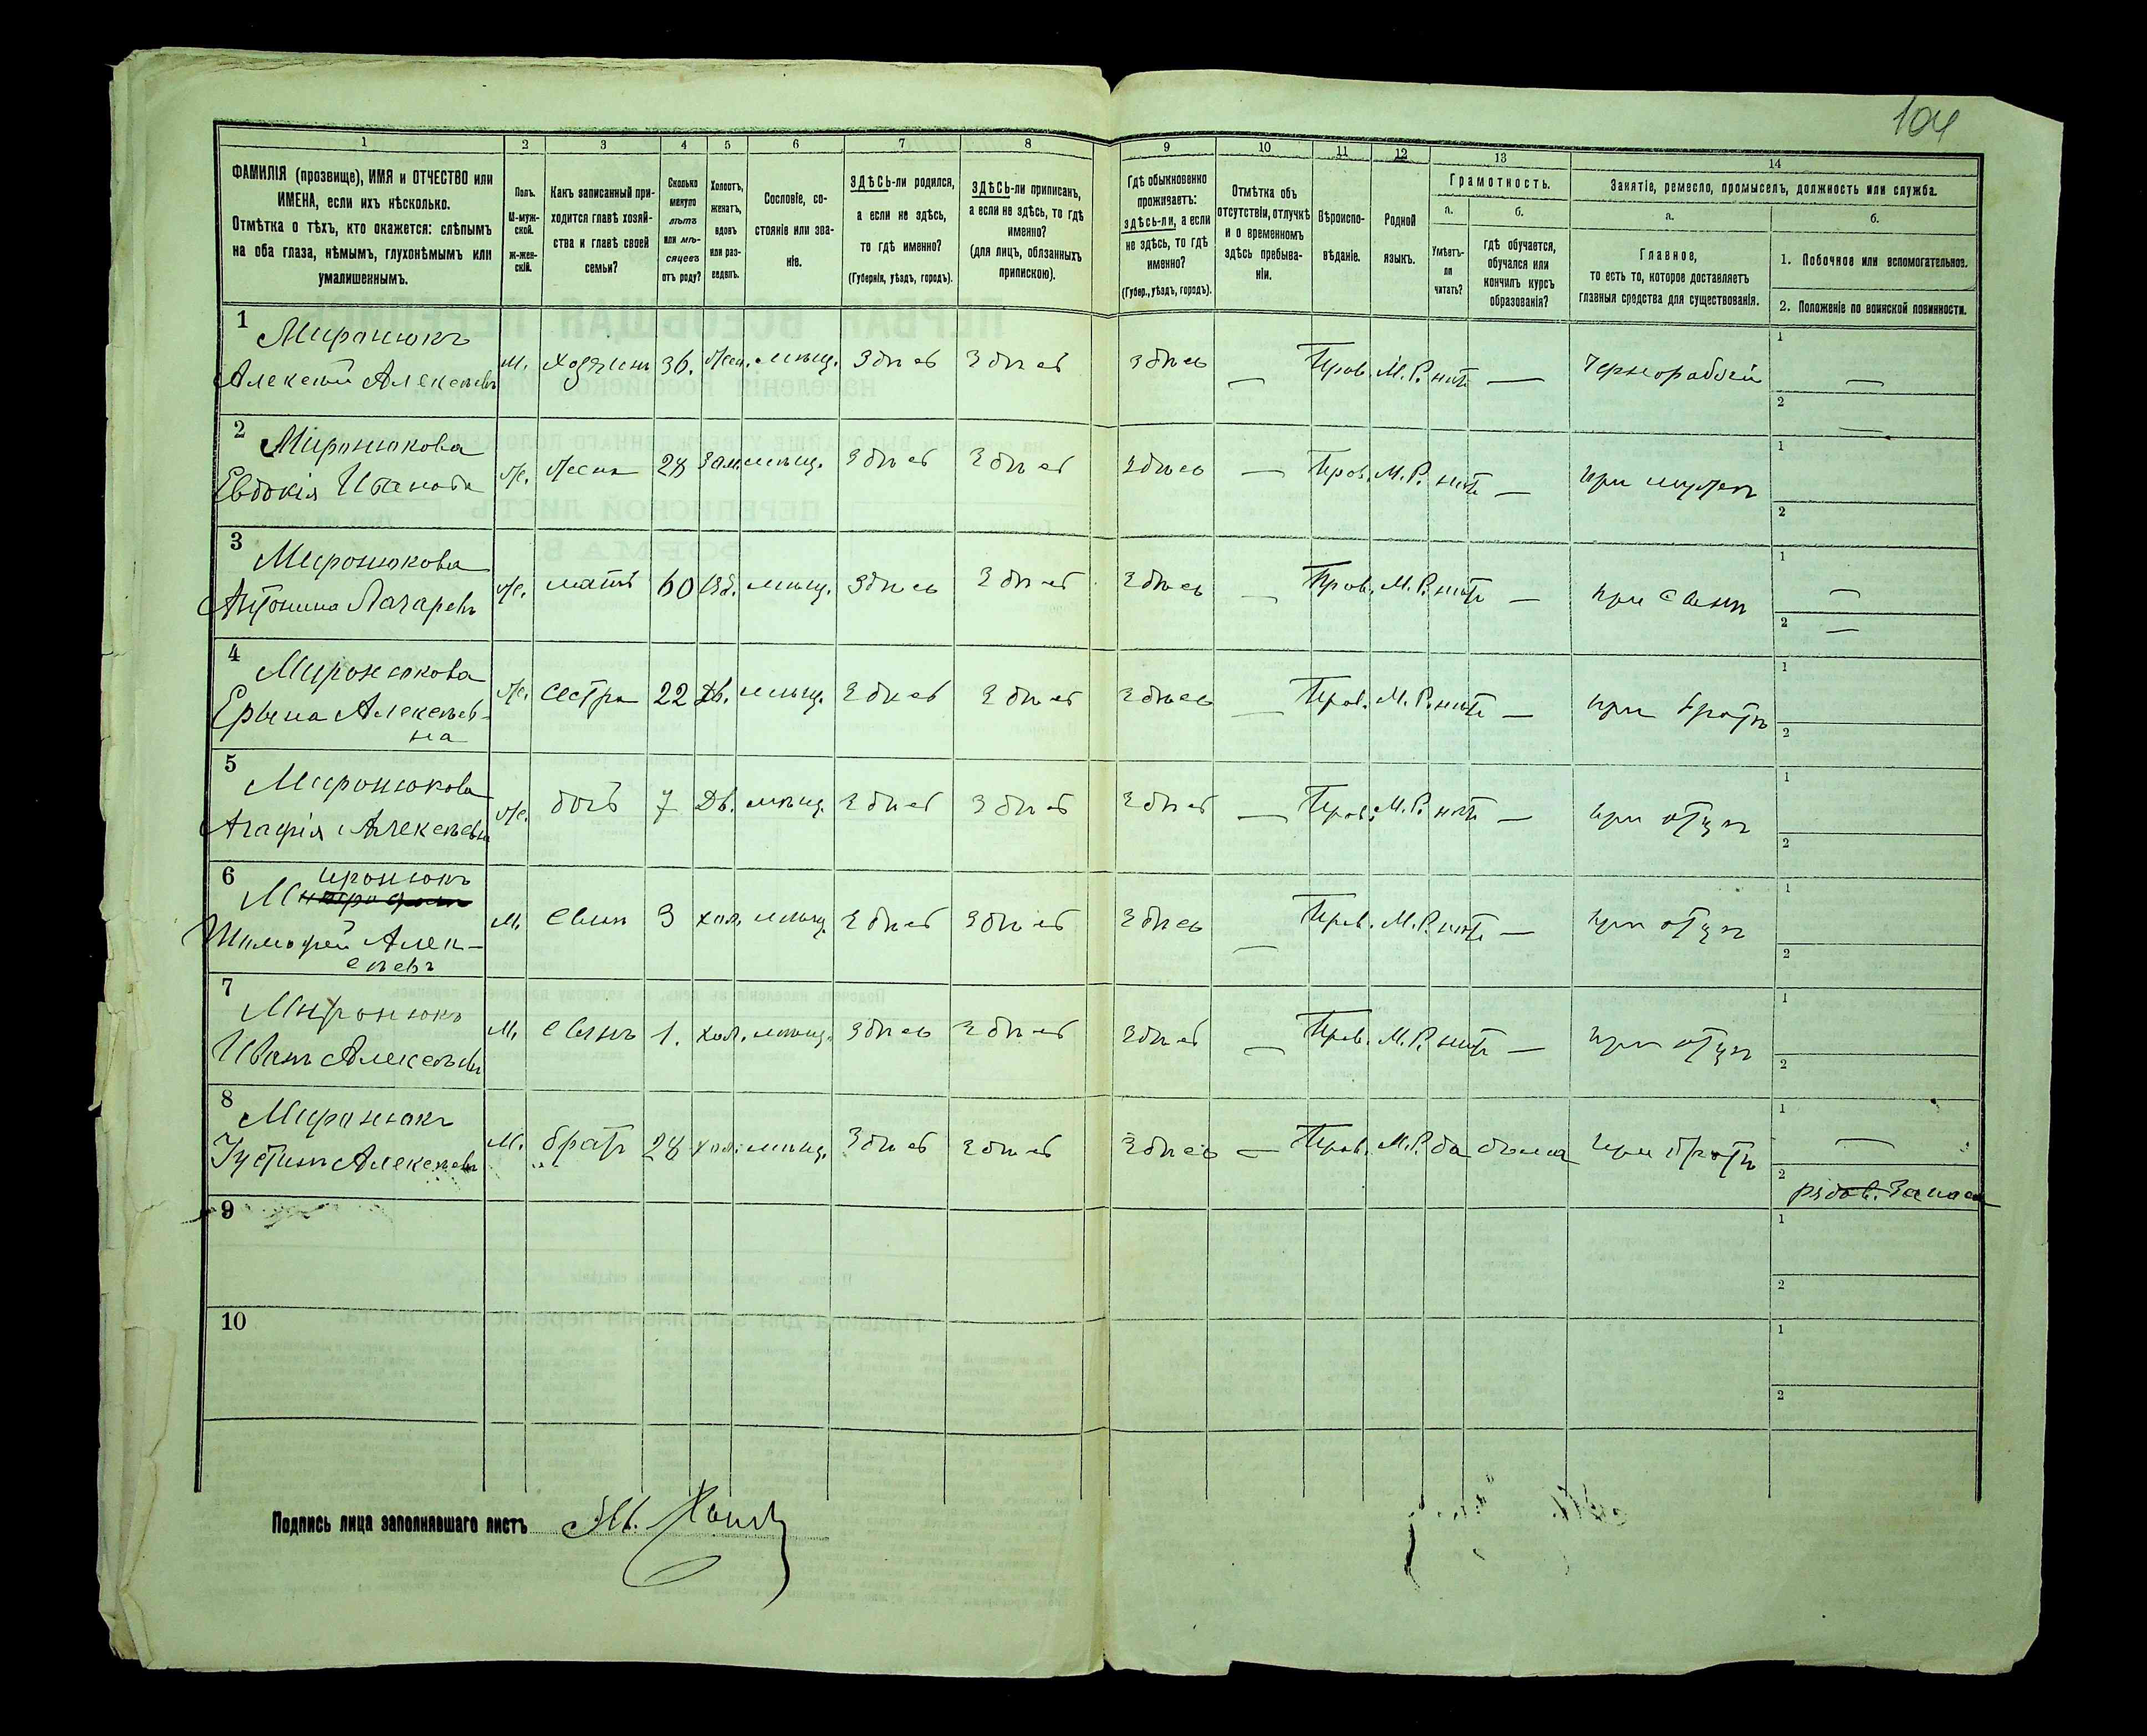 104
1
2
3
4
5
6
7
8
9
10
11
12
13
14
ФАМИЛІЯ (прозвище), ИМЯ и ОТЧЕСТВО или
ИМЕНА, если ихъ нѣсколько.
Отмѣтка о тѣхъ, кто окажется: слѣпымъ
на оба глаза, нѣмымъ, глухонѣмымъ или
умалишеннымъ.
Полъ.
М-муж-
ской.
Ж-жен-
скій.
Какъ записанный при-
ходится главѣ хозяй-
ства и главѣ своей
семьи?
Сколько
минуло
лѣтъ
или мѣ-
сяцевъ
отъ роду?
Холостъ,
женатъ,
вдовъ
или раз-
веденъ.
Сословіе, со-
стояніе или зва-
ніе.
ЗДѢСЬ-ли родился,
а если не здѣсь,
то гдѣ именно?
(Губернія, уѣздъ, городъ).
ЗДѢСЬ-ли приписанъ,
а если не здѣсь, то гдѣ
именно?
(для лицъ, обязанныхъ
припискою).
Гдѣ обыкновенно
проживаетъ:
здѣсь-ли, а если
не здѣсь, то гдѣ
именно?
(Губер., уѣздъ, городъ).
Отмѣтка объ
отсутствіи, отлучкѣ
и о временномъ
здѣсь пребыва-
ніи.
Вѣроиспо-
вѣданіе.
Родной
языкъ.
Грамотность.
а.
Умѣетъ-
ли
читать?
б.
гдѣ обучается,
обучался или
кончилъ курсъ
образованія?
Занятіе, ремесло, промыселъ, должность или служба.
а.
Главное,
то есть то, которое доставляетъ
главныя средства для существованія.
б.
1. Побочное или вспомогательное.
2. Положеніе по воинской повинности.
1 Миронюкъ
Алексѣй Алексѣевъ м. хозяинъ 36. жен. мѣщ. Здѣсь Здѣсь здѣсь — Прав. М. Р. нѣтъ — Чернорабочій 1 — 2 —
2 Миронюкова
Евдокія Иванова ж. жена 28 Зам. мѣщ. Здѣсь Здѣсь Здѣсь — Прав. М. Р. нѣтъ — при мужѣ 1 2
3 Миронюкова
Антонина Лазаревъ ж. мать 60 Вд. мѣщ. Здѣсь Здѣсь Здѣсь — Прав. М. Р. нѣтъ — при сынѣ 1 — 2 —
4 Миронюкова
Ерына Алексѣев-
на ж. сестра 22 Дѣ. мѣщ. Здѣсь Здѣсь Здѣсь — Прав. М. Р. нѣтъ — при братѣ 1 2
5 Миронюкова
Агафія Алексѣевна ж. дочь 7 Дѣ. мѣщ. Здѣсь Здѣсь Здѣсь — Прав. М. Р. нѣтъ — при отцѣ 1 2
6 Миронюкъ
Тимофей Алек-
сѣевъ М. сынъ 3 хол. мѣщ. Здѣсь Здѣсь Здѣсь — Прав. М. Р. нѣтъ — при отцѣ 1 2
7 Миронюкъ
Иванъ Алексѣевъ М. сынъ 1. хол. мѣщ. Здѣсь Здѣсь Здѣсь — Прав. М. Р. нѣтъ — при отцѣ 1 2
8 Миронюкъ
Устинъ Алексѣевъ М. братъ 28 хол. мѣщ. Здѣсь Здѣсь Здѣсь — Прав. М. Р. да дома при братѣ 1 — 2 рядов. Запаса
9 1 2
10 1 2
Подпись лица заполнявшаго листъ